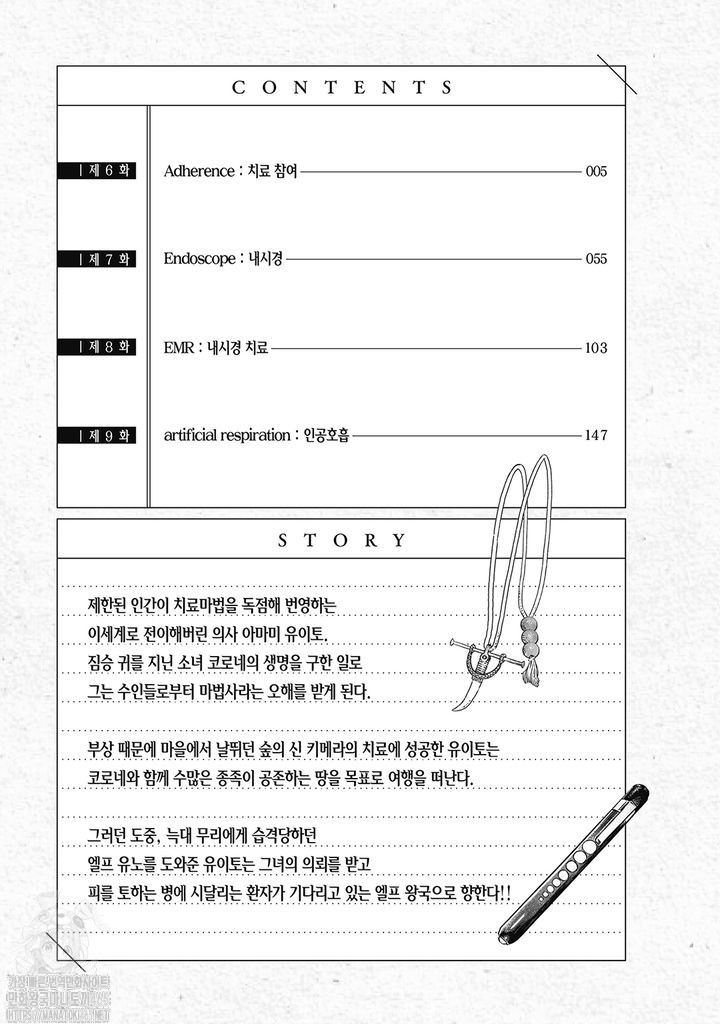 CONTENTS
제6화 Adherence : 치료 참여 005
제7화 Endoscope : 내시경 055
제8화 EMR : 내시경 치료 103
제9화 artificial respiration : 인공호흡 147
STORY
제한된 인간이 치료마법을 독점해 번영하는
이세계로 전이해버린 의사 아마미 유이토.
짐승 귀를 지닌 소녀 코로네의 생명을 구한 일로
그는 수인들로부터 마법사라는 오해를 받게 된다.
부상 때문에 마을에서 날뛰던 숲의 신 키메라의 치료에 성공한 유이토는
코로네와 함께 수많은 종족이 공존하는 땅을 목표로 여행을 떠난다.
그러던 도중, 늑대 무리에게 습격당하던
엘프 유노를 도와준 유이토는 그녀의 의뢰를 받고
피를 토하는 병에 시달리는 환자가 기다리고 있는 엘프 왕국으로 향한다!!
가장빠른번역만화사이트
만화왕국마나토끼